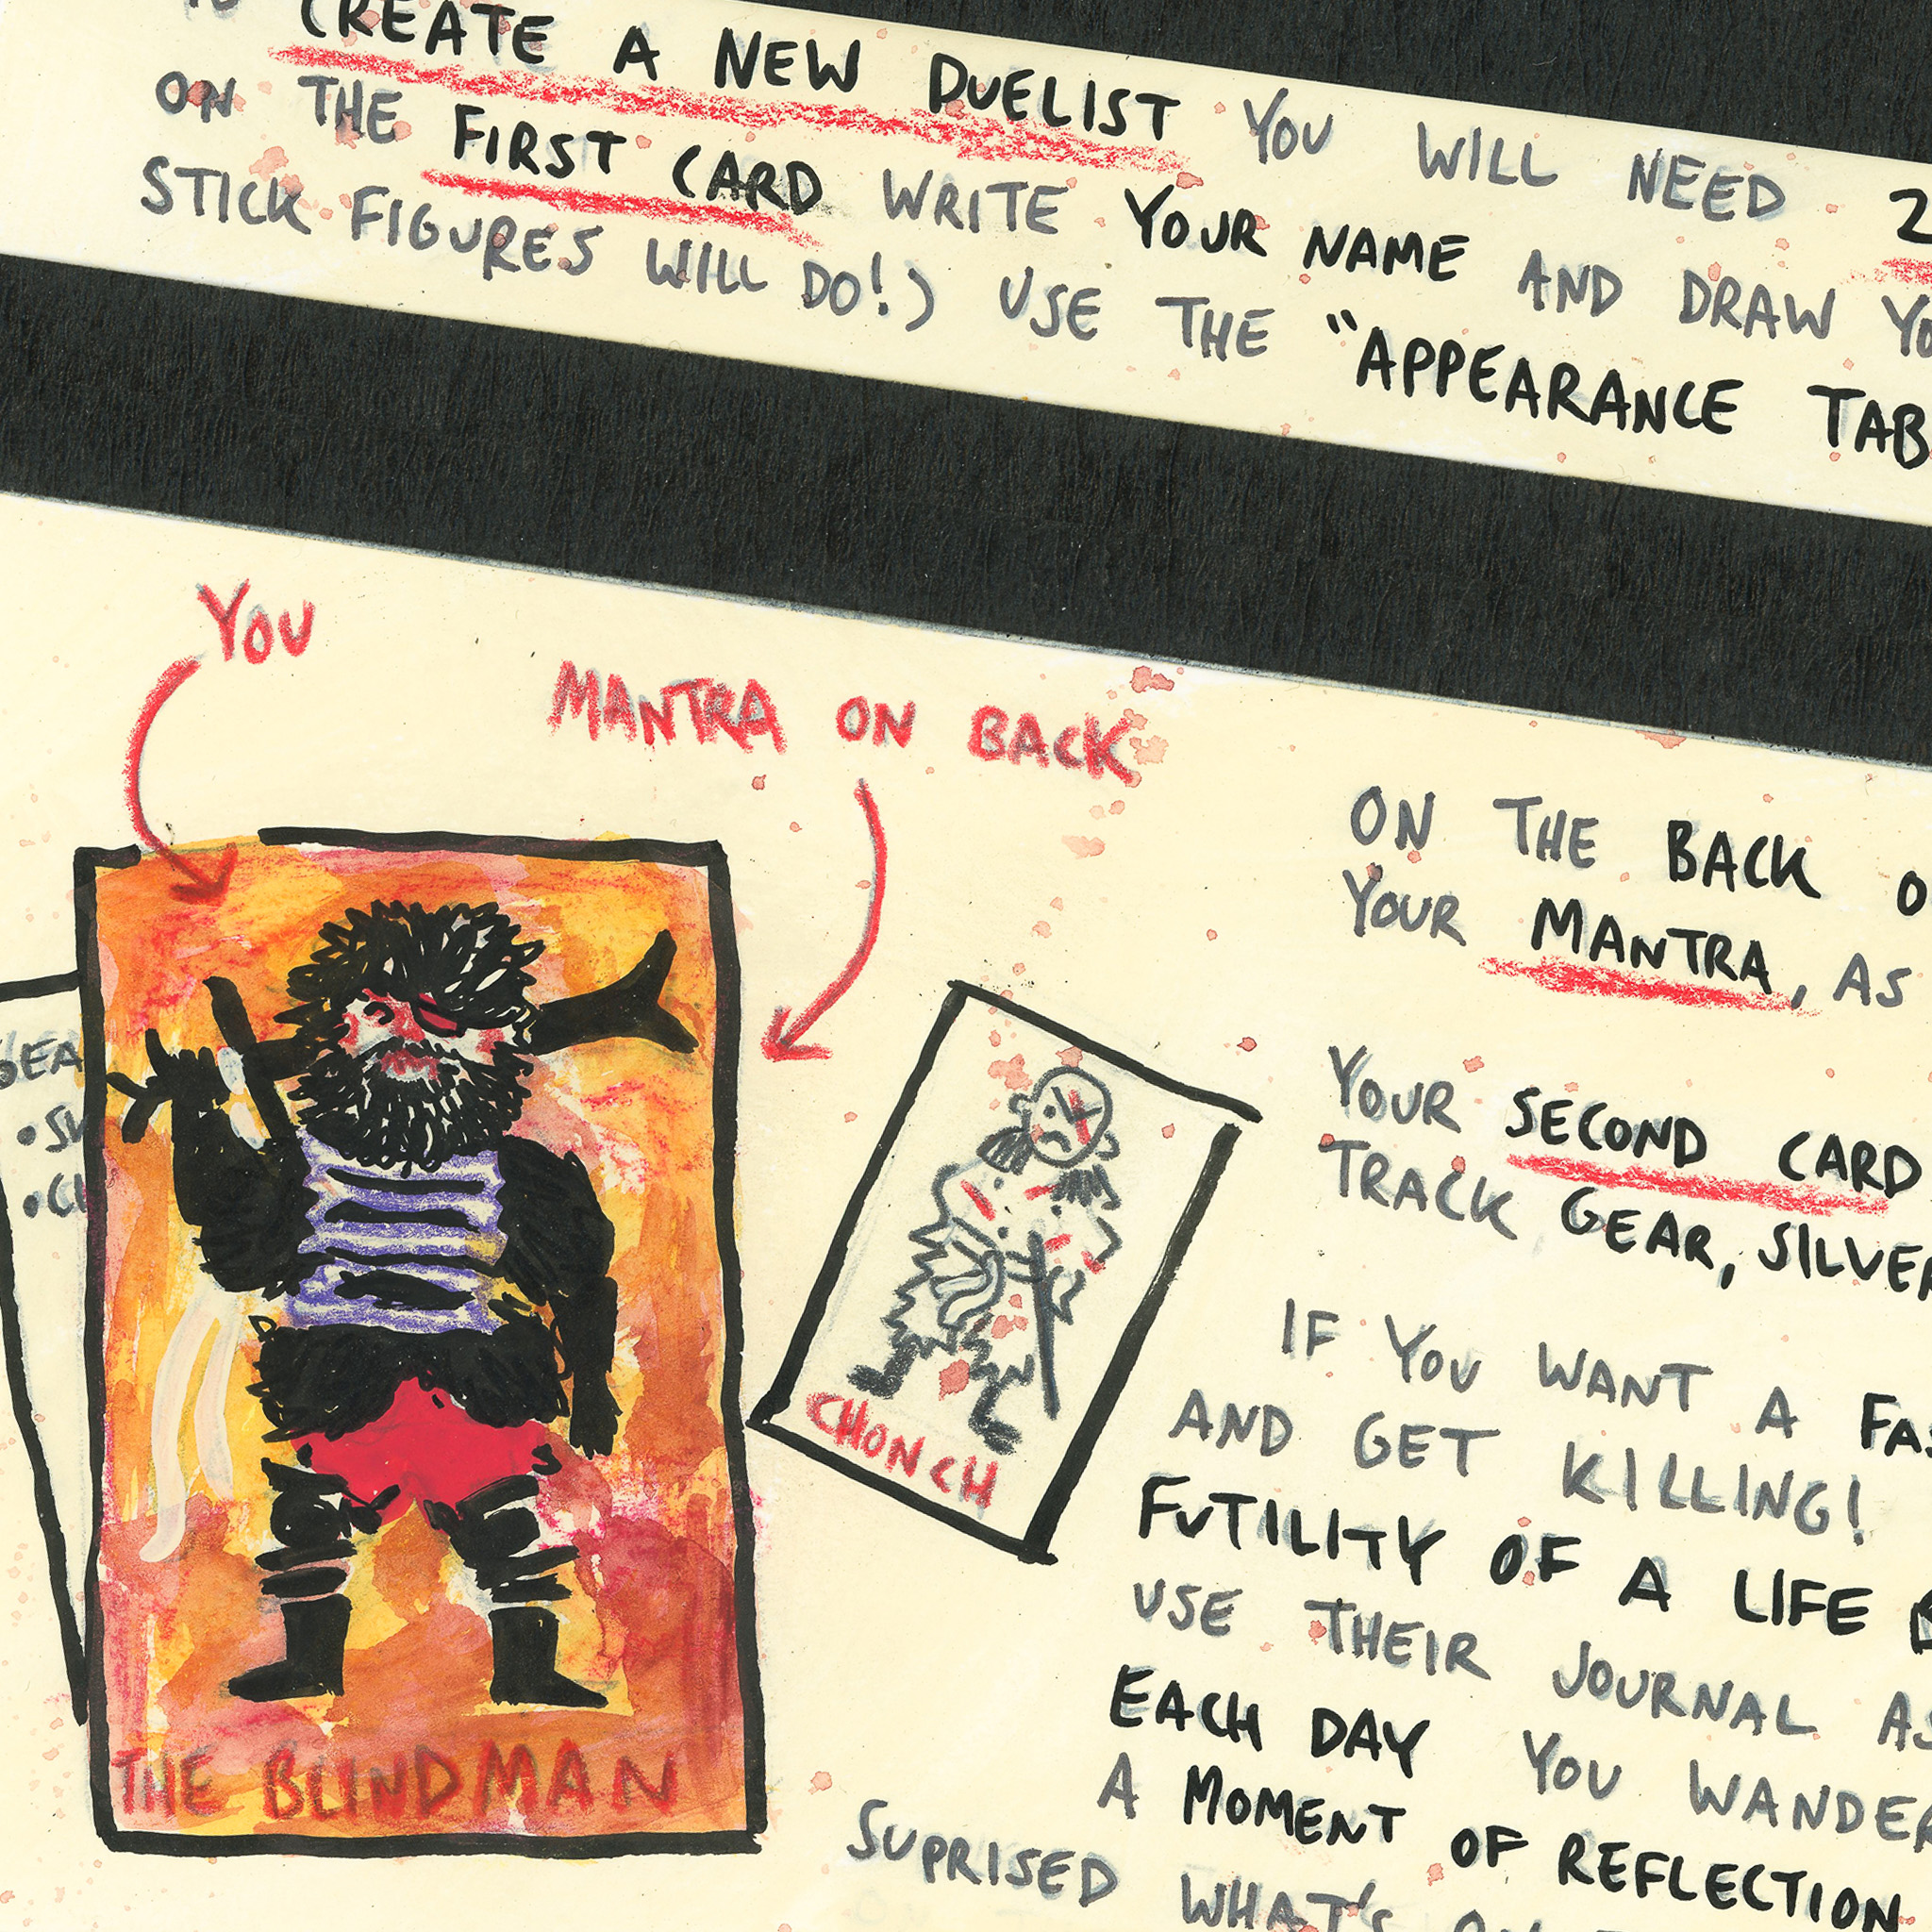 CREATE A NEW DUELIST YOU WILL NEED 2
ON THE FIRST CARD WRITE YOUR NAME AND DRAW
STICK FIGURES WILL DO!) USE THE "APPEARANCE
YOU
MANTRA ON BACK
THE BLINDMAN
CHONCH
ON THE BACK
YOUR MANTRA, AS
YOUR SECOND CARD
TRACK GEAR, SILVER
IF YOU WANT A
AND GET KILLING!
FUTILITY OF A LIFE
USE THEIR JOURNAL
EACH DAY YOU WANDER
A MOMENT OF REFLECTION
SUPRISED WHAT'S